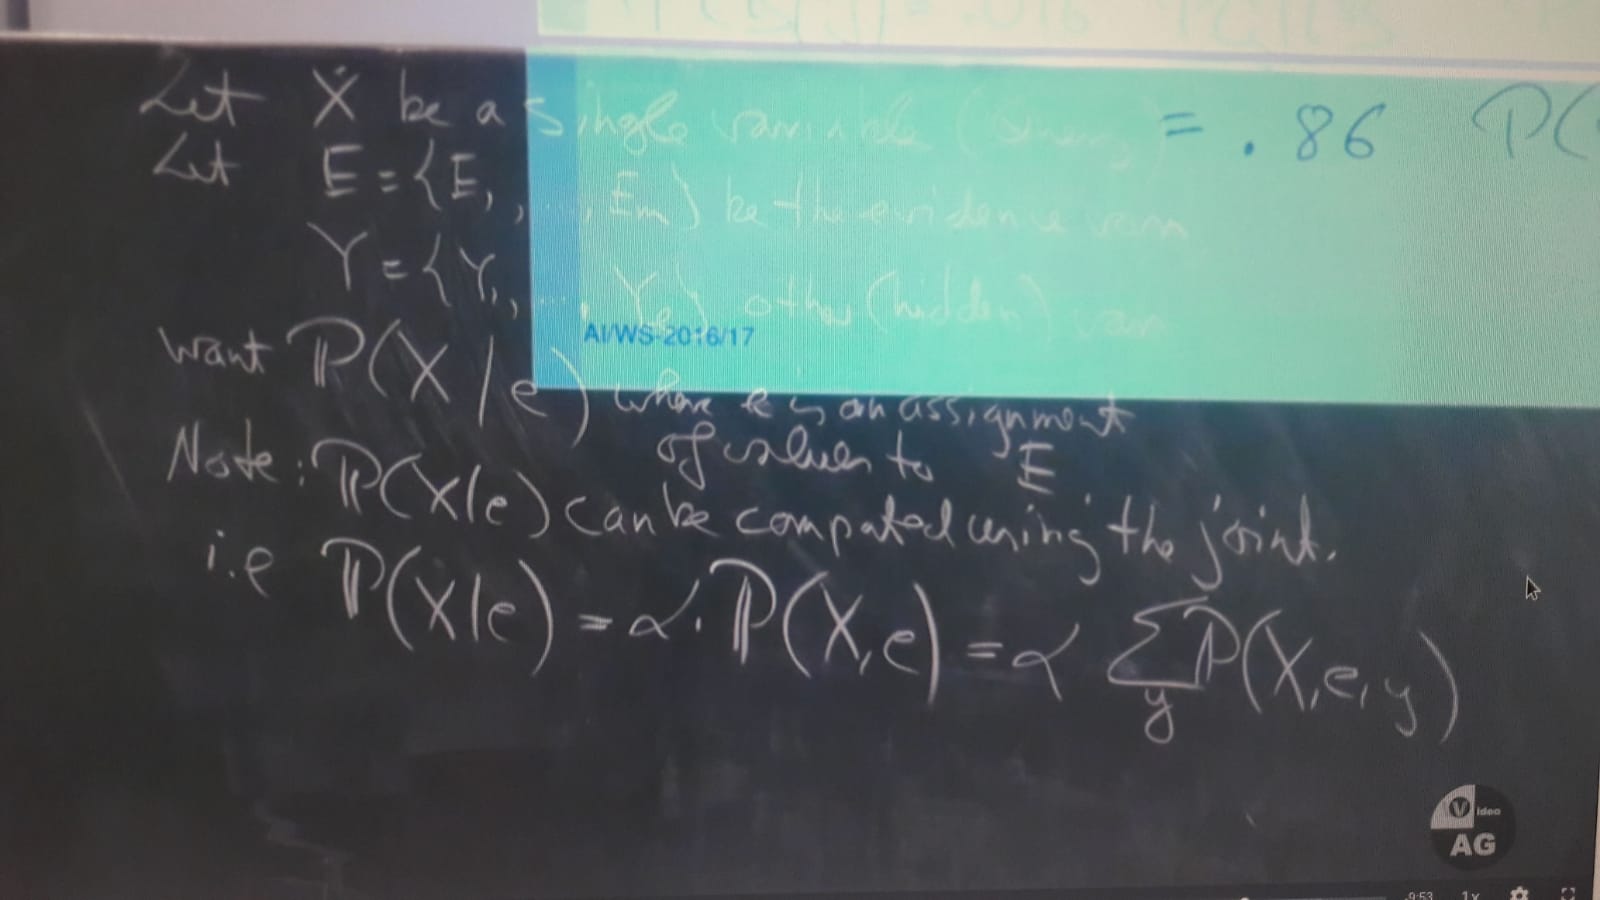 Let X be a single variable (
= .86 P(
Let E = {E, , ..., Em} be the evidence vars
Y = {Y, , ..., Ye} other (hidden) vars
AI/WS-2016/17
want P(X/e) where e is an assignment
of values to E
Note: P(X|e) can be computed using the joint.
i.e P(X|e) = α · P(X,e) = α ∑ P(X,e,y)
y
Video
AG
-0:53 1x